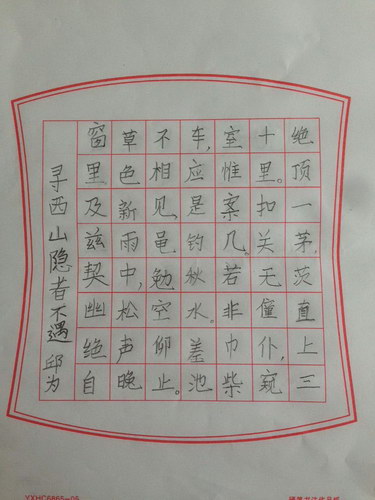 绝顶一茅,茨直上三
十里。扣关无僮仆,窥
室惟案几。若非巾柴
车,应是钓秋水。差池
不相见黾勉空仰止。
草色新雨中,松声晚
窗里及兹契幽绝自
寻西山隐者不遇 邱为